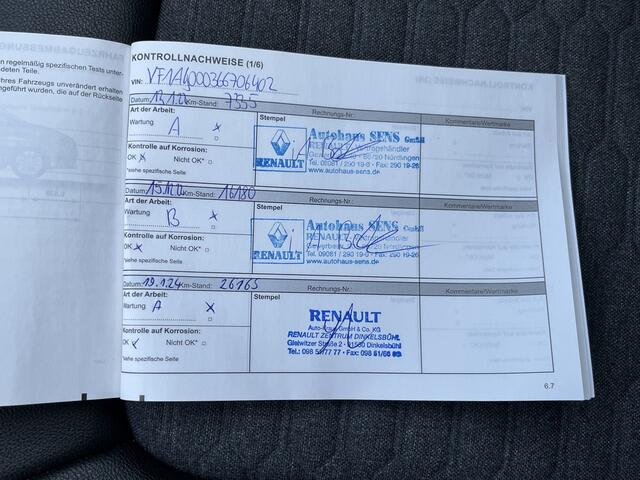 FAHRZEUGABMESSUNG
n regelmäßig spezifischen Tests unter-
deten Teile.
hres Fahrzeugs unverändert erhalten
geführt wurden, die auf der Rückseite
KONTROLLNACHWEISE (1/6)
VIN:
Datum: Km-Stand: Rechnungs-Nr.: Kommentare/Wertmarke
Art der Arbeit: Stempel
Wartung A x
Autohaus SENS GmbH
RENAULT Vertragshändler
86720 Nördlingen
Tel. 09081 / 290 19-0 · Fax: 290 19-26
www.autohaus-sens.de
RENAULT
Kontrolle auf Korrosion:
OK x Nicht OK* □
*siehe spezifische Seite
Datum: Km-Stand: 16180 Rechnungs-Nr.: Kommentare/Wertmarke
Art der Arbeit: Stempel
Wartung B x
Autohaus SENS GmbH
RENAULT
Tel. 09081 / 290 19-0 · Fax: 290 19-26
www.autohaus-sens.de
RENAULT
Kontrolle auf Korrosion:
OK x Nicht OK* □
*siehe spezifische Seite
Datum: 19.1.24 Km-Stand: 26165 Rechnungs-Nr.: Kommentare/Wertmarke
Art der Arbeit: Stempel
Wartung A x
RENAULT
GmbH & Co. KG
RENAULT ZENTRUM DINKELSBÜHL
Gleiwitzer Straße 2 · 91550 Dinkelsbühl
Kontrolle auf Korrosion:
OK Nicht OK* □
*siehe spezifische Seite
6.7